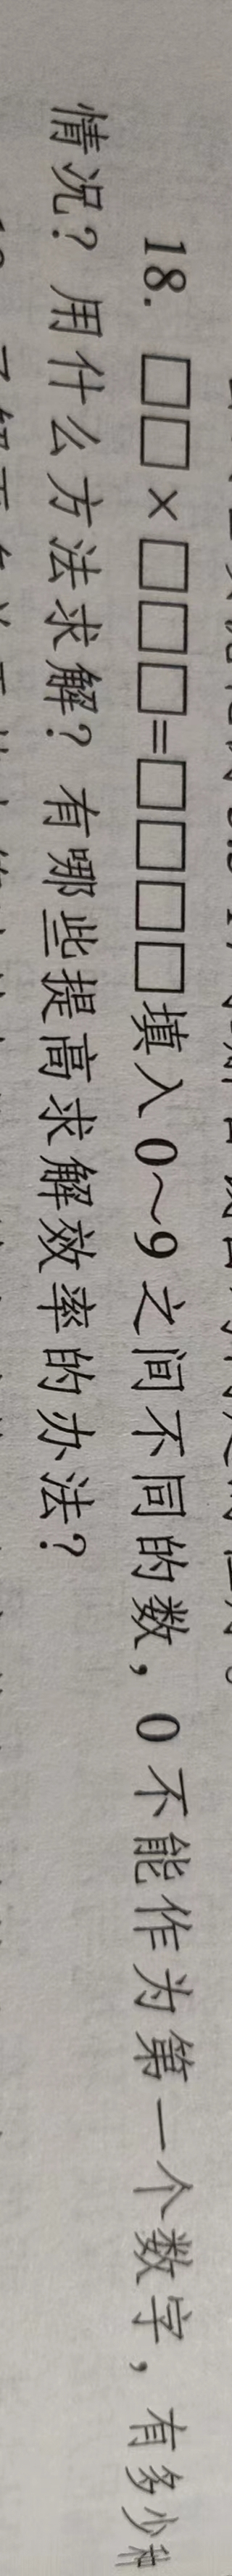 18. □□×□□□=□□□□填入0～9之间不同的数，0不能作为第一个数字，有多少种
情况？用什么方法求解？有哪些提高求解效率的办法？